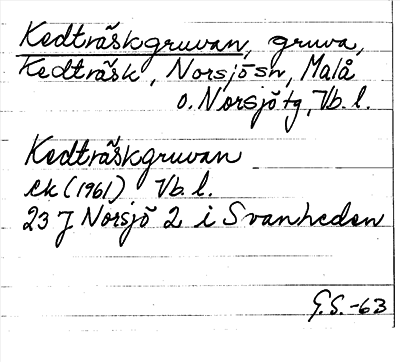 Kedträskgruvan, gruva,
Kedträsk, Norsjö sn, Malå
o. Norsjö tg, Vb. l.
Kedträskgruvan
ek (1961) Vb. l.
23 J Norsjö 2 i Svanheden
G.S. -63